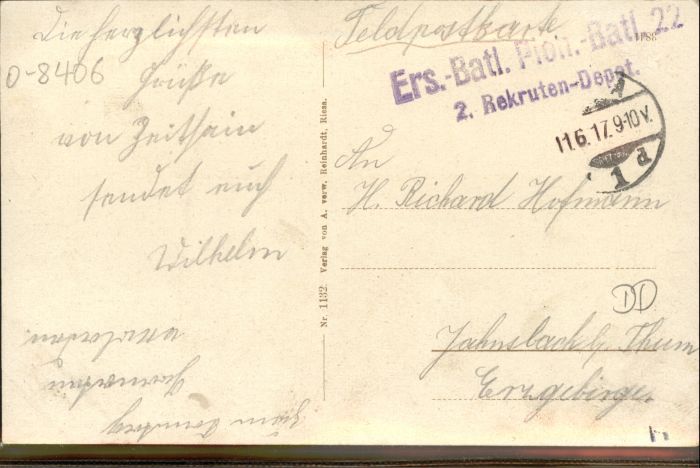 Die herzlichsten
0-8406
Grüße
von Zeithain
sendet euch
Wilhelm
Nr. 1132. Verlag von A. verw. Reinhardt, Riesa.
Feldpostkarte
Ers.-Batl. Pion.-Batl. 22
2. Rekruten-Depot.
11.6.17.9-10V.
1 d
An
H. Richard Hofmann
DD
Jahnsbach b/ Thum
Erzgebirge.